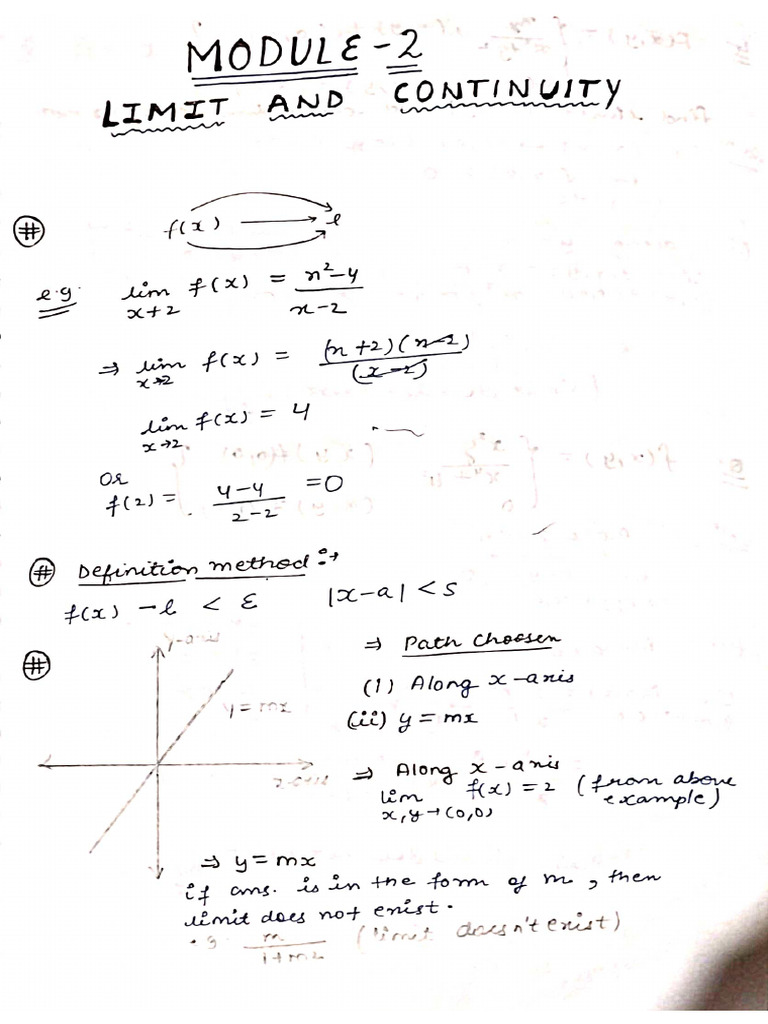 MODULE-2
LIMIT AND CONTINUITY
# f(x) → l
e.g. lim x+2 f(x) = x²-4 / x-2
⇒ lim x→2 f(x) = (x+2)(x-2) / (x-2)
lim x→2 f(x) = 4
Or
f(2) = 4-4 / 2-2 = 0
# Definition method :→
f(x) - l < ε |x-a| < s
# y-axis
y = mx
x-axis
⇒ Path Choosen
(1) Along x-axis
(ii) y = mx
⇒ Along x-axis
lim x,y→(0,0) f(x) = 2 (from above example)
⇒ y = mx
if ans. is in the form of m, then
limit does not exist.
e.g. m / 1+m2 (limit doesn't exist)